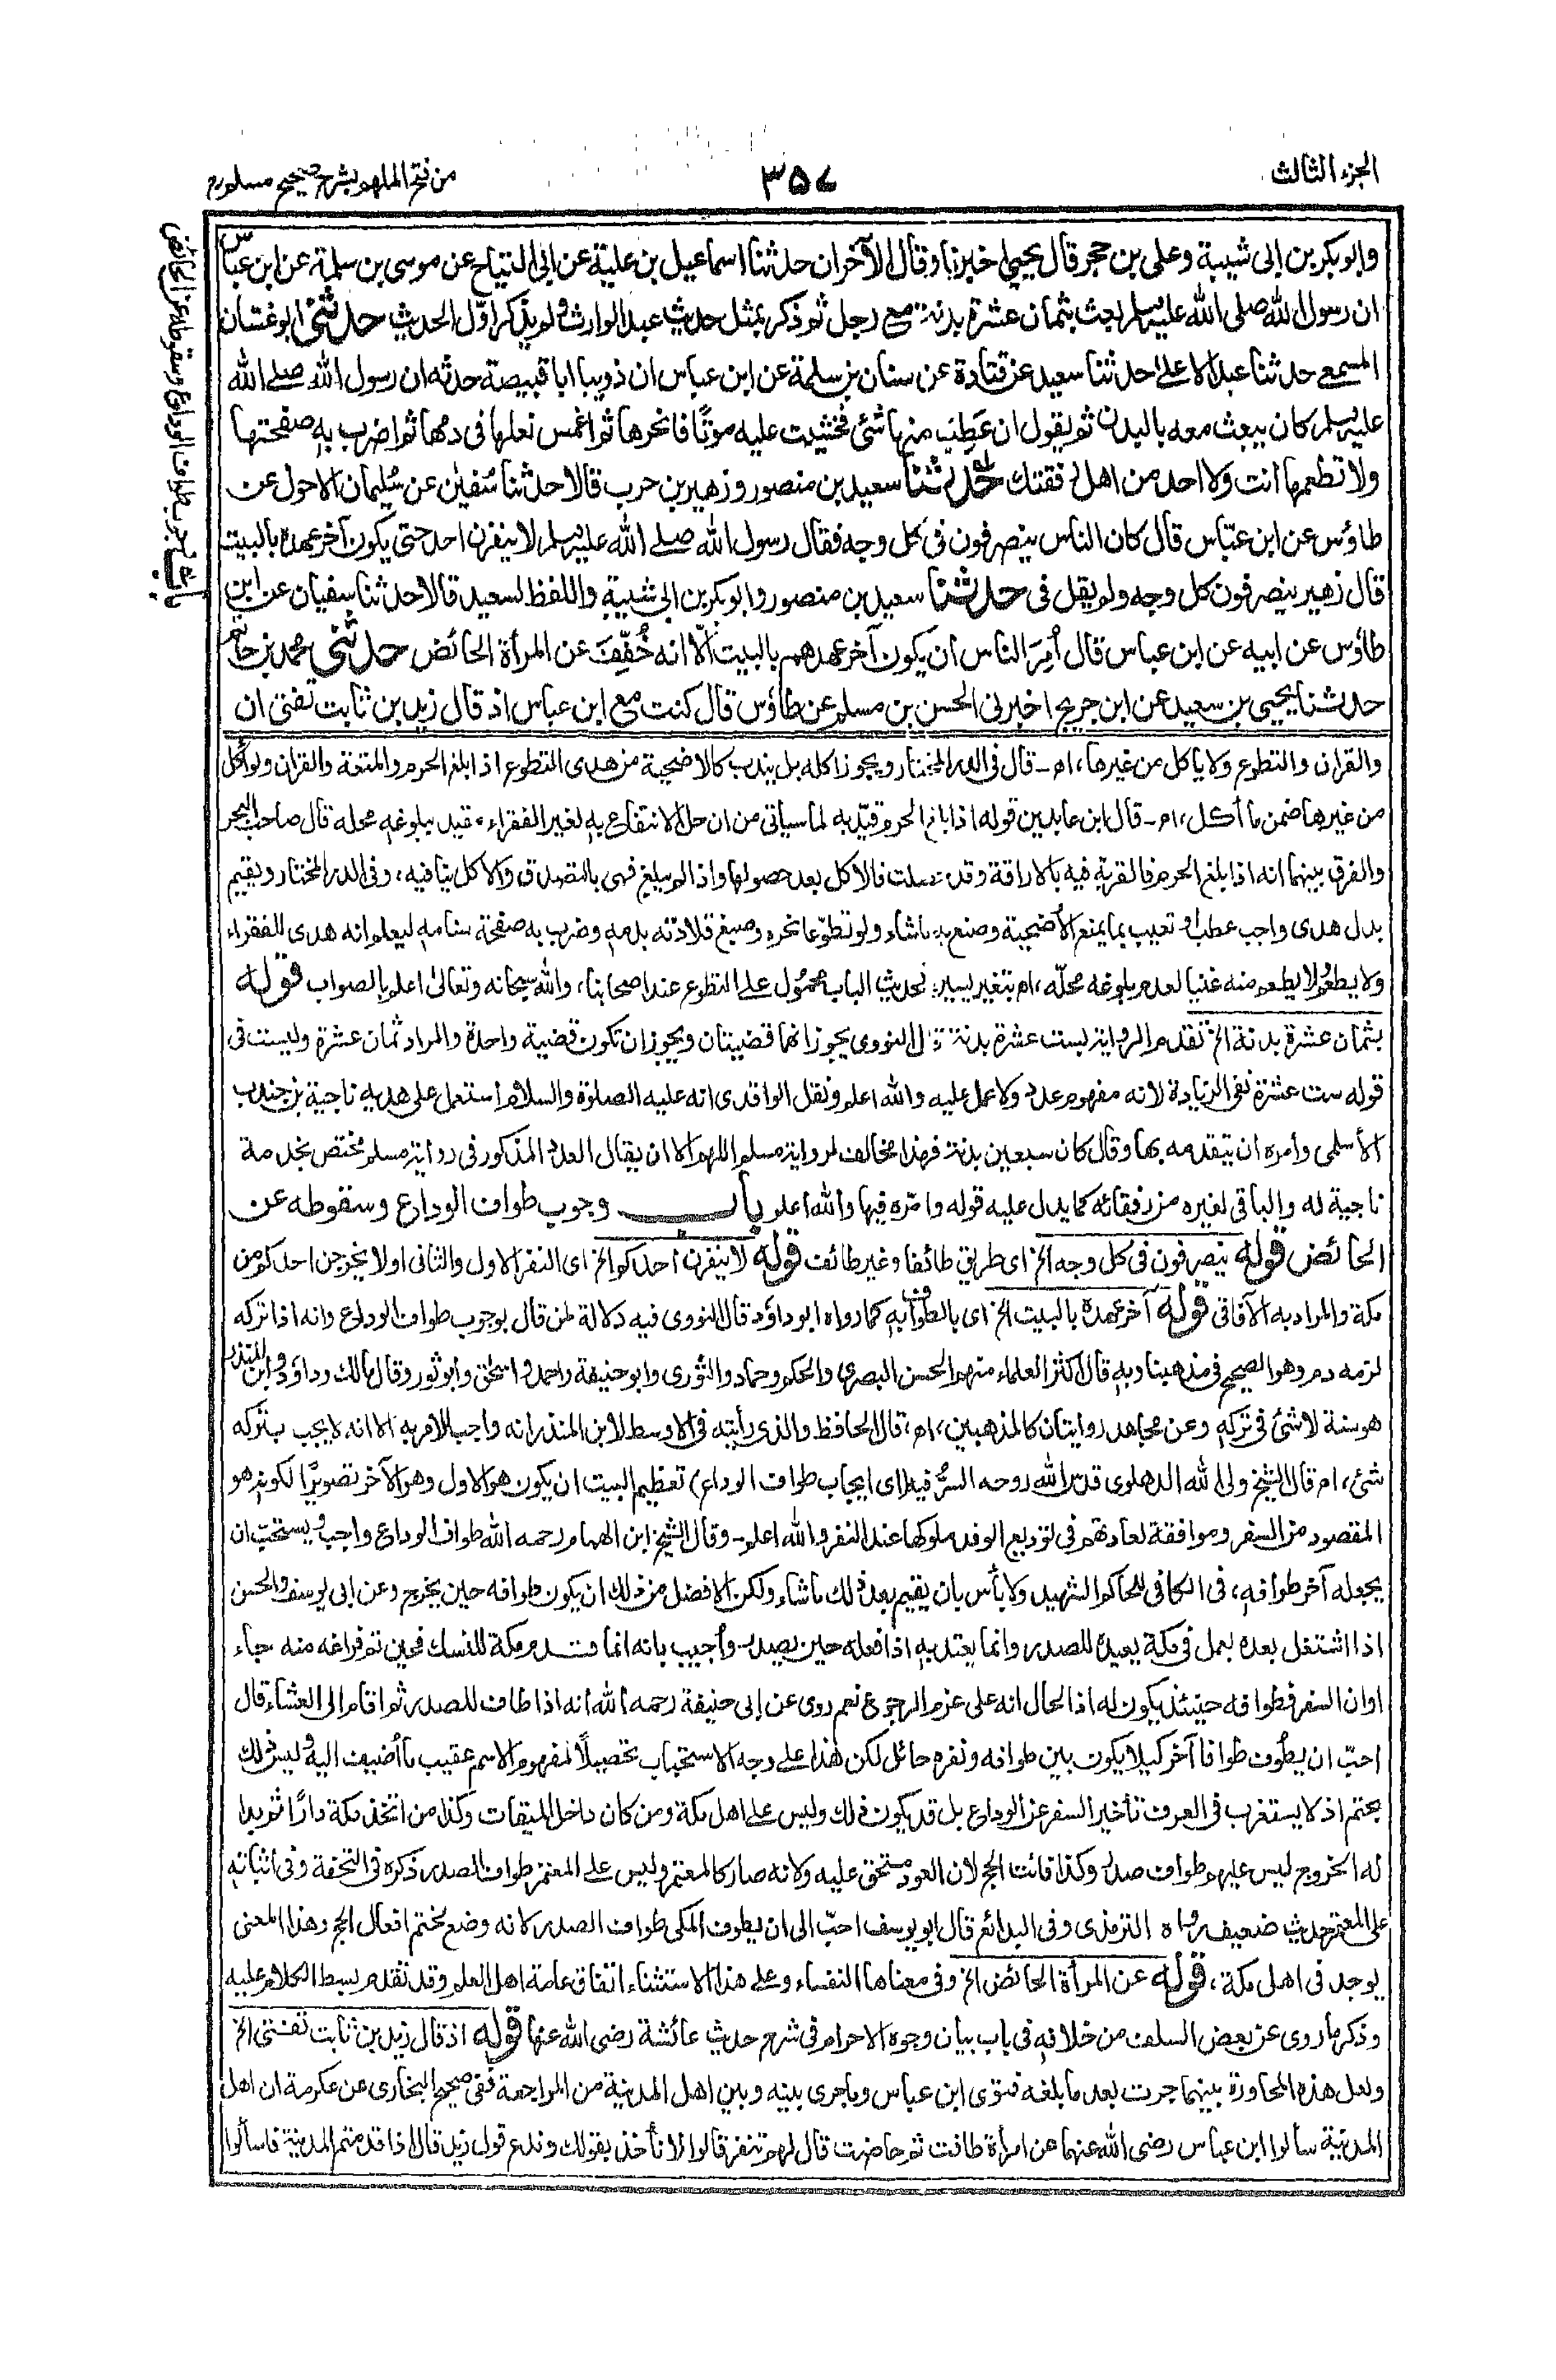 الجزء الثالث
٣٥٧
من فتح الملهم بشرح صحيح مسلم
باب وجوب طواف الوداع وسقوطه عن الحائض
وابوبكر بن ابى شيبة وعلى بن حجر قال يحيى اخبرنا وقال الآخران حدثنا اسماعيل بن علية عن ابى التياح عن موسى بن سلمة عن ابن عباس
ان رسول الله صلى الله عليه وسلم بعث بثمان عشرة بدنة مع رجل ثم ذكر بمثل حديث عبد الوارث ولم يذكر اوّل الحديث حدثنى ابو غسّان
المسمعى حدثنا عبد الاعلى حدثنا سعيد عن قتادة عن سنان بن سلمة عن ابن عباس ان ذويبا ابا قبيصة حدثه ان رسول الله صلى الله
عليه وسلم كان يبعث معه بالبدن ثم يقول ان عَطِبَ منها شئى فخشيت عليه موتًا فانحرها ثم اغمس نعلها فى دمها ثم اضرب به صفحتها
ولا تطعمها انت ولا احد من اهل رفقتك حدثنا سعيد بن منصور وزهير بن حرب قالا حدثنا سُفيٰن عن سُليمان الاحول عن
طاؤس عن ابن عبّاس قال كان الناس ينصرفون فى كل وجه فقال رسول الله صلى الله عليه وسلم لا ينفرن احد حتى يكون آخر عهده بالبيت
قال زهير ينصرفون كل وجه ولم يقل فى حدثنا سعيد بن منصور وابو بكر بن ابى شيبة واللفظ لسعيد قالا حدثنا سفيان عن ابن
طاؤس عن ابيه عن ابن عباس قال أُمِرَ الناس ان يكون آخر عهدهم بالبيت الّا انه خُفِّفَ عن المرأة الحائض حدثنى محمد بن حاتم
حدثنا يحيى بن سعيد عن ابن جريج اخبرنى الحسن بن مسلم عن طاؤس قال كنت مع ابن عباس اذ قال زيد بن ثابت تفتى ان
والقران والتطوع ولا يأكل من غيرها، اھ۔ قال فى الدر المختار ويجوز اكله بل يندب كالاضحية من هدى التطوع اذا بلغ الحرم والمتعة والقران ولو أكل
من غيرها ضمن ما أكل، اھ۔ قال ابن عابدين قوله اذا بلغ الحرم قيّد به لما سيأتى من ان حل الانتفاع به لغير الفقراء مقيد ببلوغه محله قال صاحب البحر
والفرق بينهما انه اذا بلغ الحرم فالقربة فيه بالاراقة وقد حصلت فالاكل بعد حصولها واذا لم يبلغ فهى بالتصدق والاكل ينافيه، وفى الدر المختار ويقيم
بدل هدى واجب عطب او تعيب بما يمنع الأضحية وصنع به ماشاء ولو تطوّعا نحره وصبغ قلادته بدمه وضرب به صفحة سنامه ليعلم انه هدى للفقراء
ولا يطعم منه غنيا لعدم بلوغه محلّه، اھ بتغير يسير: فحديث الباب محمُول على التطوع عند اصحابنا، والله سبحانه وتعالىٰ اعلم بالصواب قوله
بثمان عشرة بدنة الخ تقدم الرواية بست عشرة بدنة قال النووى يجوز انهما قضيتان ويجوز ان تكون قضية واحدة والمراد ثمان عشرة وليست فى
قوله ست عشرة نفى الزيادة لانه مفهوم عدد ولا عمل عليه والله اعلم ونقل الواقدى انه عليه الصلوٰة والسلام استعمل على هديه ناجية بن جندب
الأسلمى وأمره ان يتقدمه بها وقال كان سبعين بدنة فهذا مخالف لرواية مسلم اللهم الا ان يقال العدد المذكور فى رواية مسلم مختص بخدمة
ناجية له والباقى لغيره من رفقائه كما يدل عليه قوله وامّره فيها والله اعلم باب وجوب طواف الوداع وسقوطه عن
الحائض قوله ينصرفون فى كل وجه الخ اى طريق طائفا وغير طائف قوله لا ينفرن احدكم الخ اى النفر الاول والثانى او لا يخرجن احدكم من
مكة والمراد به الآفاقى قوله آخر عهده بالبيت الخ اى بالطواف به كما رواه ابو داؤد قال النووى فيه دلالة لمن قال بوجوب طواف الوداع وانه اذا تركه
لزمه دم وهو الصحيح فى مذهبنا وبه قال اكثر العلماء منهم الحسن البصرى والحكم وحماد والثورى وابو حنيفة واحمد واسحٰق وابو ثور وقال مالك وداؤد وابن المنذر
هو سنة لا شئ فى تركه وعن مجاهد روايتان كالمذهبين، اھ، قال الحافظ والذى رأيته فى الاوسط لابن المنذر انه واجب للامر به الا انه لا يجب بتركه
شئ، اھ قال الشيخ ولى الله الدهلوى قدس الله روحه السرّ فيه (اى ايجاب طواف الوداع) تعظيم البيت ان يكون هو الاول وهو الآخر تصويرًا لكونه هو
المقصود من السفر وموافقة لعادتهم فى توديع الوفد ملوكها عند النفر والله اعلم۔ وقال الشيخ ابن الهمام رحمه الله طواف الوداع واجب ويستحبّ ان
يجعله آخر طوافه، فى الكافى للحاكم الشهيد ولا بأس بان يقيم بعد ذلك ماشاء ولكن الافضل من ذلك ان يكون طوافه حين يخرج وعن ابى يوسف والحسن
اذا اشتغل بعده بعمل فى مكة يعيده للصدر وانما يعتد به اذا فعله حين يصدر۔ وأجيب بانه انما قدم مكة للنسك فحين تم فراغه منه جاء
اوان السفر فطوافه حينئذ يكون له اذ الحال انه على عزم الرجوع نعم روى عن ابى حنيفة رحمه الله انه اذا طاف للصدر ثم اقام الى العشاء قال
احبّ ان يطُوف طوافا آخر كيلا يكون بين طوافه ونفره حائل لكن هذا على وجه الاستحباب تحصيلًا لمفهوم الاسم عقيب ما أضيف اليه وليس ذلك
بحتم اذ لا يستغرب فى العرف تأخير السفر عن الوداع بل قد يكون ذلك وليس على اهل مكة ومن كان داخل الميقات وكذا من اتخذ مكة دارًا ثم بدا
له الخروج ليس عليهم طواف صدر وكذا فائت الحج لان العود مستحق عليه ولانه صار كالمعتمر وليس على المعتمر طواف الصدر ذكره فى التحفة وفى اثباته
على المعتمر حديث ضعيف رواه الترمذى وفى البدائع قال ابو يوسف احبّ الى ان يطوف المكى طواف الصدر لانه وضع لختم افعال الحج وهذا المعنى
يوجد فى اهل مكة، قوله عن المرأة الحائض الخ وفى معناها النفساء وعلى هذا الاستثناء اتفاق عامة اهل العلم وقد تقدم بسط الكلام عليه
وذكر ما روى عن بعض السلف من خلافه فى باب بيان وجوه الاحرام فى شرح حديث عائشة رضى الله عنها قوله اذ قال زيد بن ثابت تفتى الخ
ولعل هذه المحاورة بينهما جرت بعد ما بلغه فتوى ابن عباس وما جرى بينه وبين اهل المدينة من المراجعة ففى صحيح البخارى عن عكرمة ان اهل
المدينة سألوا ابن عباس رضى الله عنهما عن امرأة طافت ثم حاضت قال لهم تنفر قالوا لا نأخذ بقولك وندع قول زيد قال اذا قدمتم المدينة فاسألوا